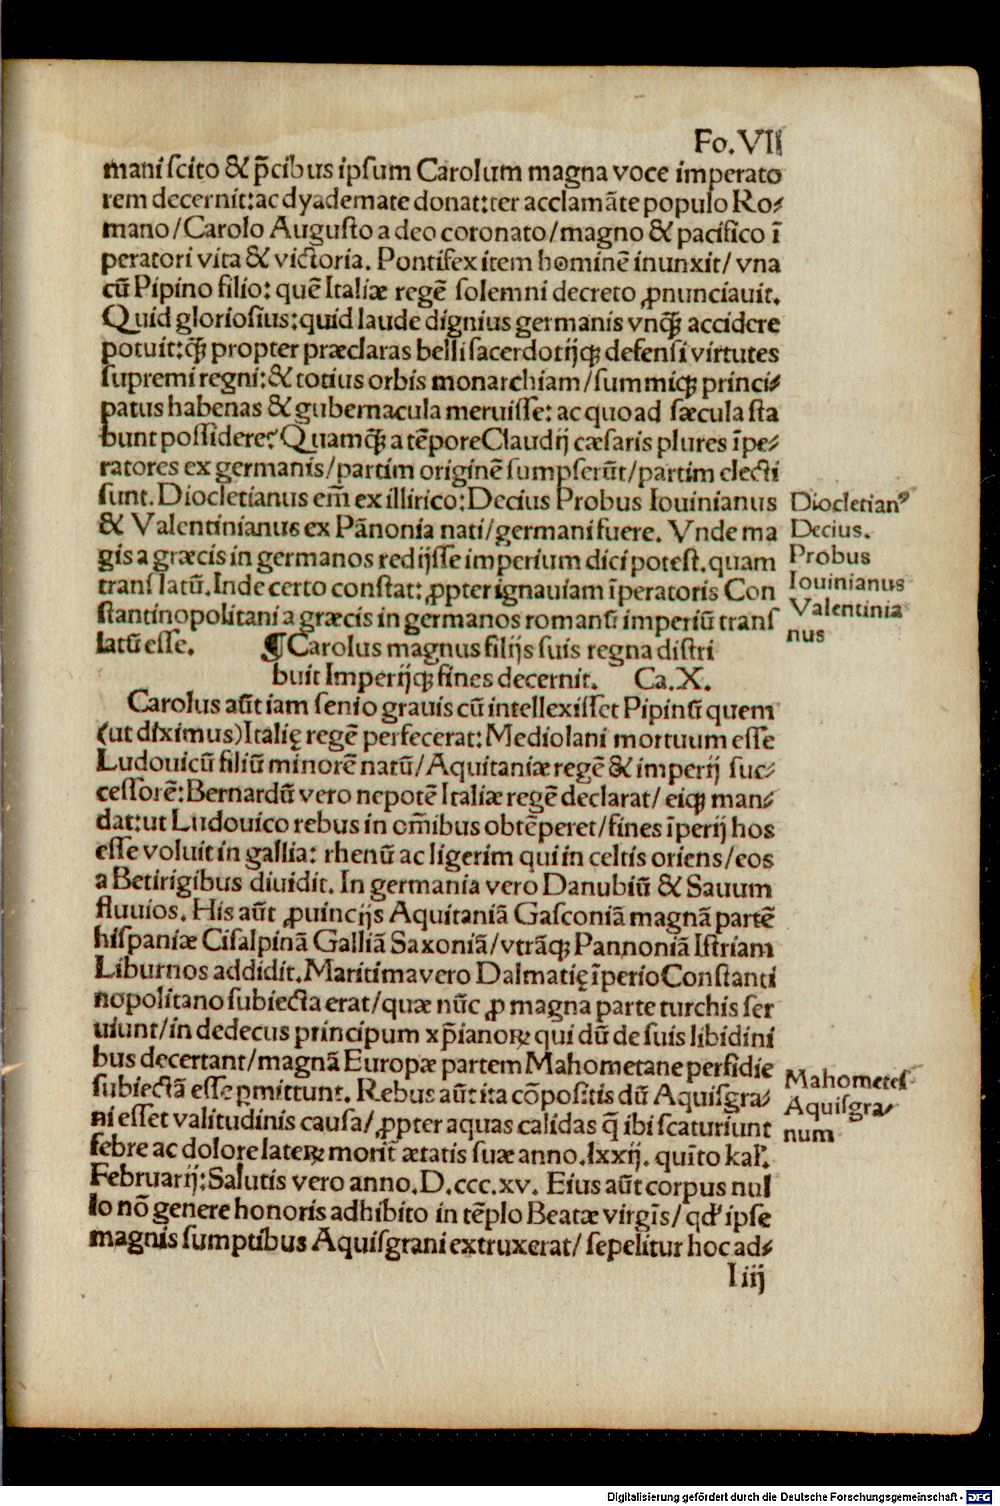 Fo.VII
mani ſcito & p̄cibus ipſum Carolum magna voce imperato
rem decernit:ac dyademate donat:ter acclamāte populo Ro⸗
mano/Carolo Auguſto a deo coronato/magno & pacifico ī
peratori vita & victoria. Pontifex item hominē inunxit/ vna
cū Pipino filio: quē Italiæ regē ſolemni decreto ꝓnunciavit.
Quid glorioſius:quid laude dignius germanis vnqꝫ accidere
potuit:qꝫ propter præclaras belli ſacerdotijqꝫ defenſi virtutes
ſupremi regni:& totius orbis monarchiam/ſummiqꝫ princi⸗
patus habenas & gubernacula meruiſſe: ac quoad ſæcula ſta
bunt poſſidere? Quamqꝫ a tēpore Claudij cæſaris plures īpe⸗
ratores ex germanis/partim originē ſumpſerūt/partim electi
ſunt. Diocletianus em̄ ex illirico: Decius Probus Iouinianus
& Valentinianus ex Pānonia nati/germani fuere. Vnde ma
gis a græcis in germanos redijſſe imperium dici poteſt. quam
tranſlatū. Inde certo conſtat: ꝓpter ignauiam īperatoris Con
ſtantinopolitani a græcis in germanos romanū imperiū tranſ
latū eſſe. ¶ Carolus magnus filijs ſuis regna diſtri
buit Imperijqꝫ fines decernit. Ca.X.
Carolus aūt iam ſenio grauis cū intellexiſſet Pipinū quem
(ut diximus)Italię regē perfecerat: Mediolani mortuum eſſe
Ludouicū filiū minorē natū/Aquitaniæ regē & imperij ſuc⸗
ceſſorē: Bernardū vero nepotē Italiæ regē declarat/ eiqꝫ man⸗
dat:ut Ludouico rebus in om̄ibus obtēperet/fines īperij hos
eſſe voluit in gallia: rhenū ac ligerim qui in celtis oriens/eos
a Betirigibus diuidit. In germania vero Danubiū & Sauum
fluuios. His aūt ꝓuincijs Aquitaniā Gaſconiā magnā partē
hiſpaniæ Ciſalpinā Galliā Saxoniā/vtrāqꝫ Pannoniā Iſtriam
Liburnos addidit. Maritima vero Dalmatię īperio Conſtanti
nopolitano ſubiecta erat/quæ nūc ꝓ magna parte turchis ſer
uiunt/in dedecus principum xp̄ianoꝝ qui dū de ſuis libidini
bus decertant/magnā Europæ partem Mahometane perfidie
ſubiectā eſſe ꝑmittunt. Rebus aūt ita cōpoſitis dū Aquiſgra⸗
ni eſſet valitudinis cauſa/ꝓpter aquas calidas q̄ ibi ſcaturiunt
febre ac dolore lateꝝ morit᷑ ætatis ſuæ anno.lxxij. quīto kal̓.
Februarij: Salutis vero anno.D.ccc.xv. Eius aūt corpus nul
lo nō genere honoris adhibito in tēplo Beatæ virgīs/ qd̓ ipſe
magnis ſumptibus Aquiſgrani extruxerat/ ſepelitur hoc ad⸗
I iij
Diocletianꝰ
Decius.
Probus
Iouinianus
Valentinia
nus
Mahometeſ
Aquiſgra⸗
num
Digitalisierung gefördert durch die Deutsche Forschungsgemeinschaft - DFG